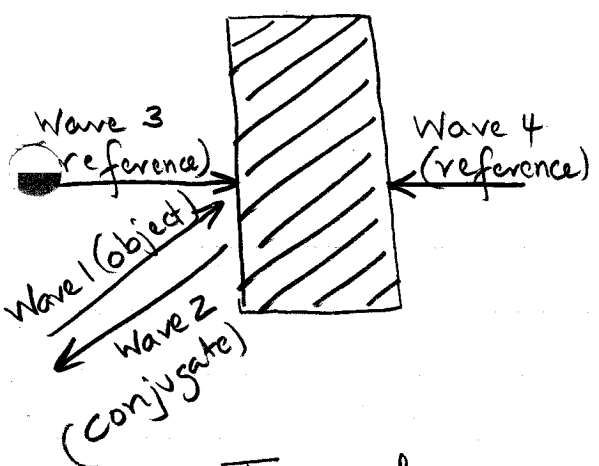 Wave 3
reference)
Wave 4
(reference)
Wave 1 (object)
Wave 2
(conjugate)